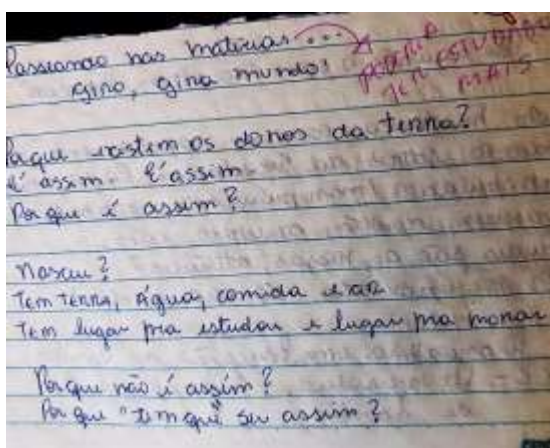 Passeando nas matérias...
PODERIA
TER ESTUDADO
MAIS
gira, gira mundo!
Porque existem os donos da terra?
é assim. É assim.
Por que é assim?
Nasceu?
Tem TERRA, Água, comida e
Tem lugar pra estudar e lugar pra morar
Porque não é assim?
Por que "tem que" ser assim?